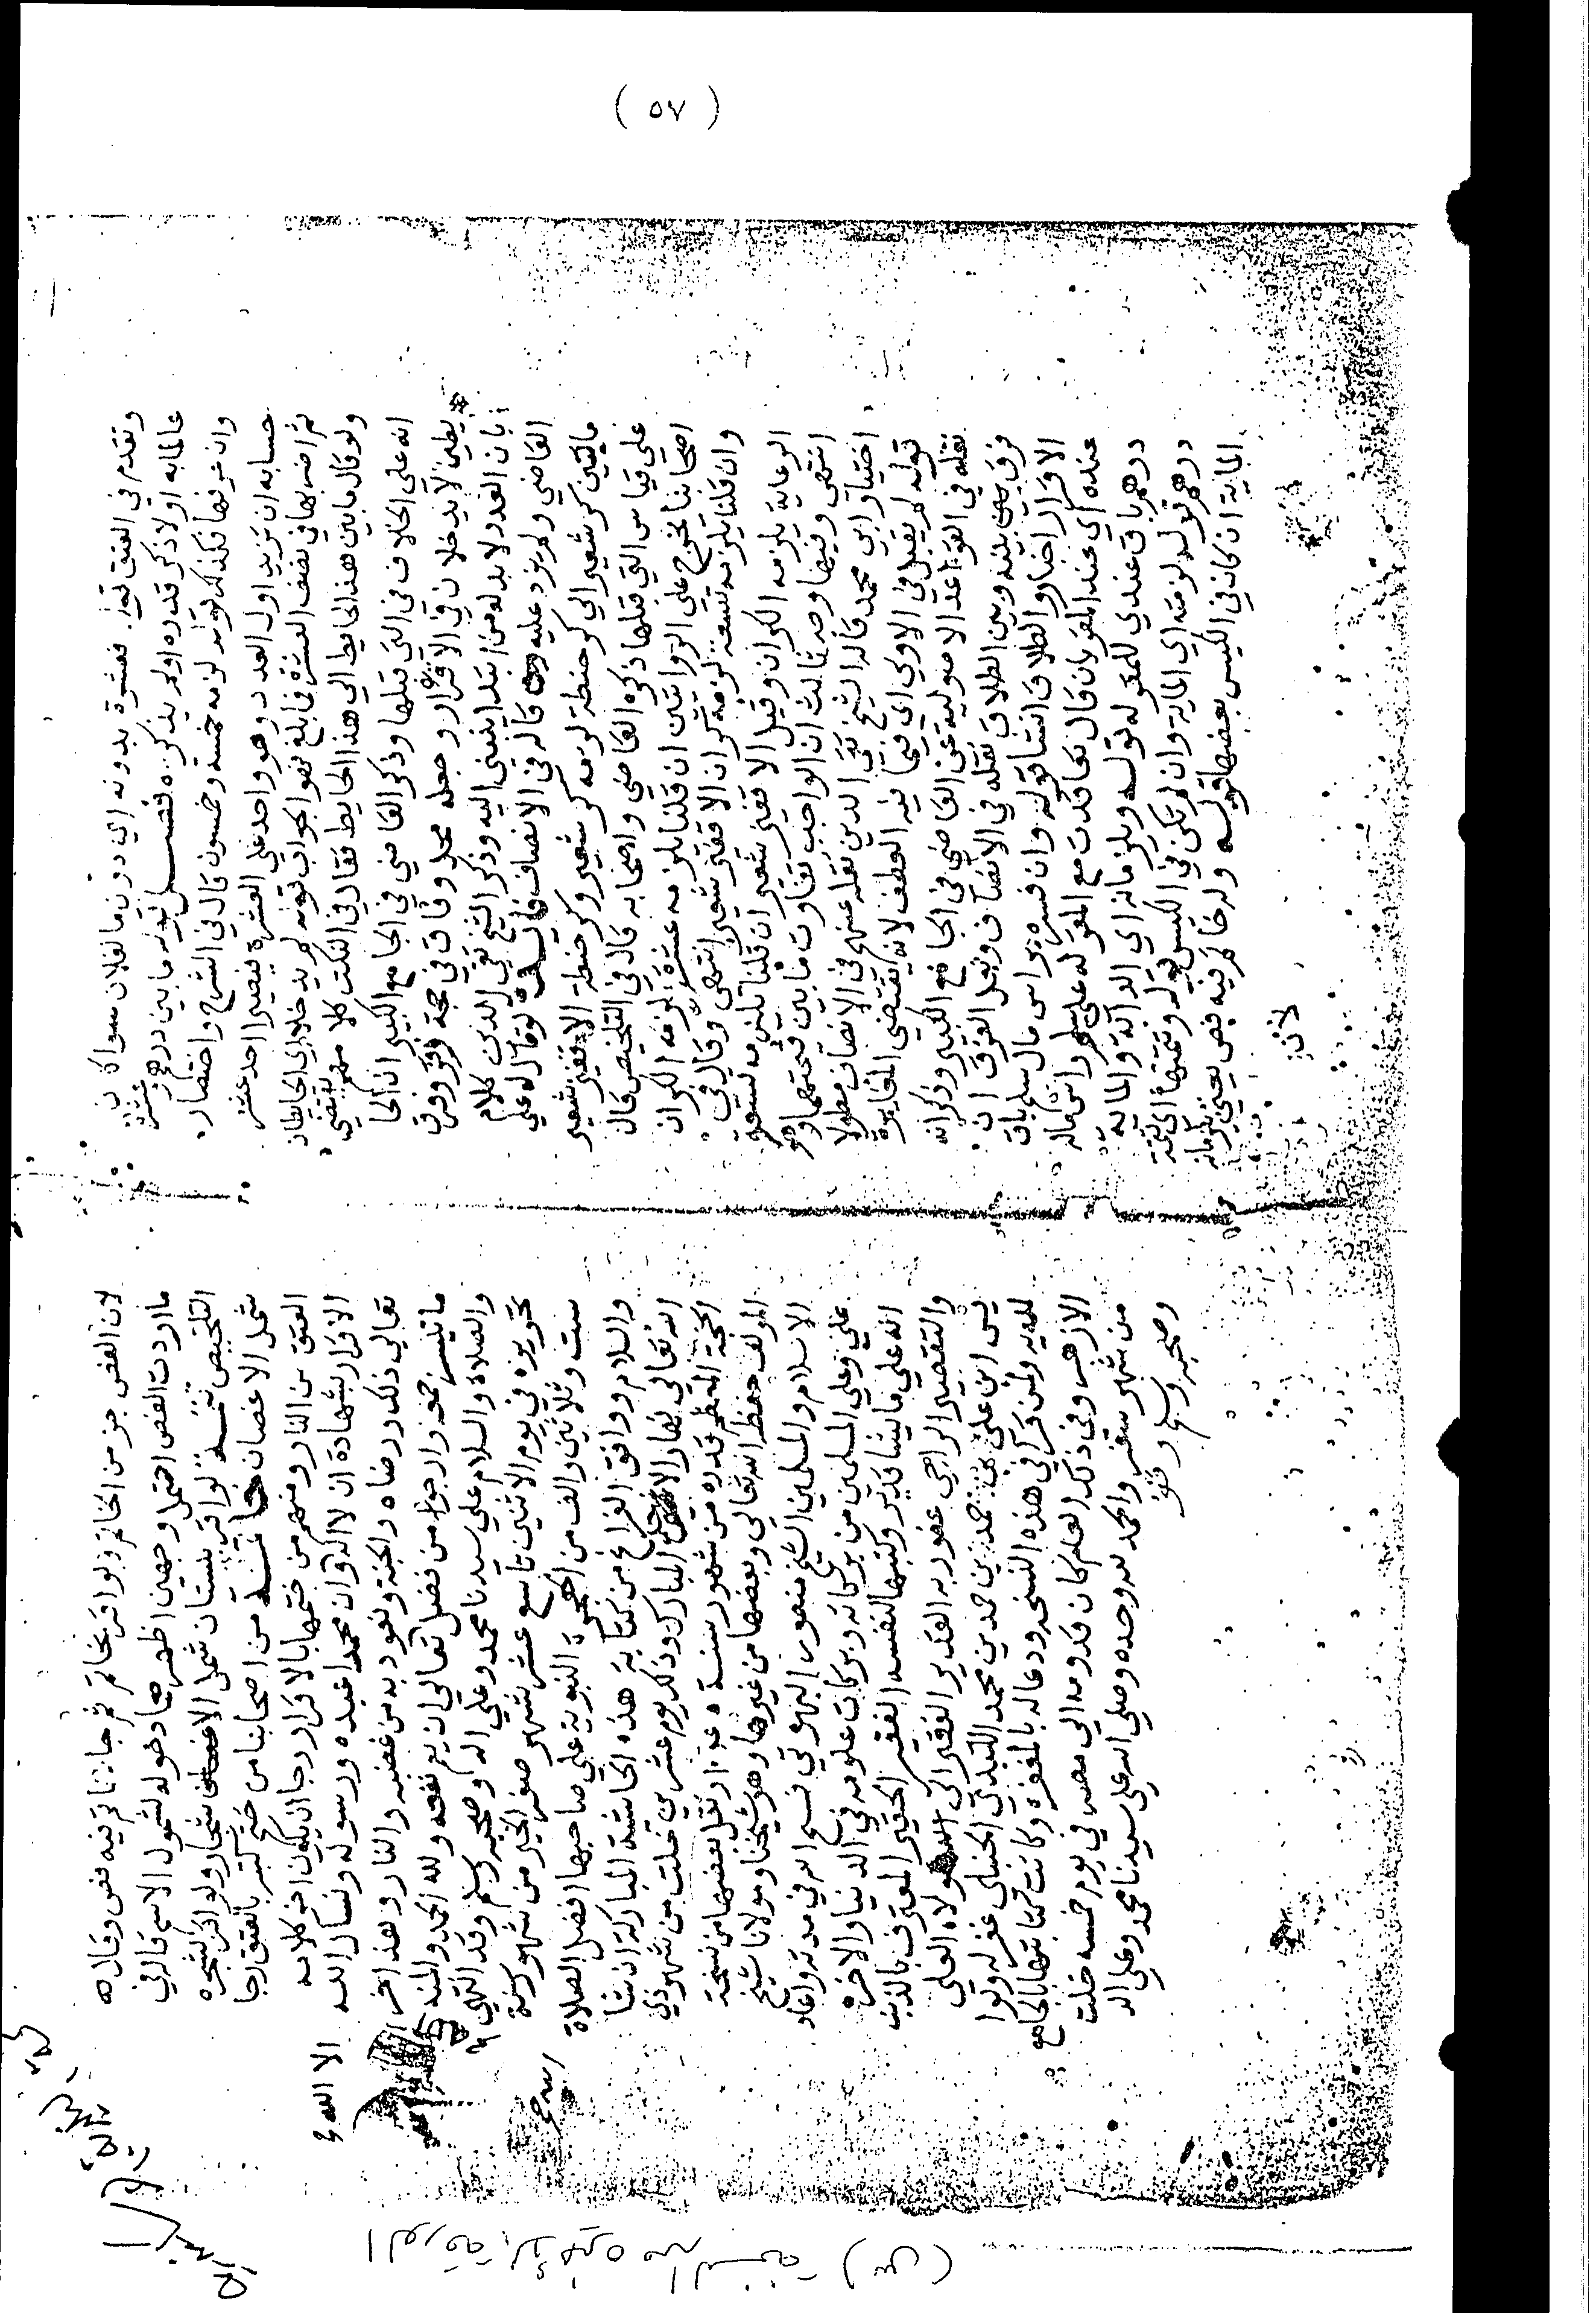 ( ٥٧ )
وتقدم في العتق قوله فعشرة بدونه اي دون ما لفلان سوا كان
عالما به او لا ذكر قدره او لم يذكره قوله ما بين درهم وعشرة
وان عرفها فكذلك قوله لزمه خمسة وخمسون قال في الشرح واختصار
حسابه ان تزيد اول العدد وهو واحد على العشرة فيصير احد عشر
ثم اضربها في نصف العشرة فما بلغ فهو الجواب قوله لم يدخلا اي الحايطان
ولو قال ما بين هذا الحايط الى هذا الحايط فقال في النكت كلامهم يقتضي
انه على الخلاف في التي قبلها وذكر القاضي في الجامع الكبير ان الحا
يطين لا يدخلان في الاقرار وجعله محل وفاق في حجة زفر وفرق
بان العدد لا بد له من ابتدا ينبني اليه وذكر الشيخ تقي الدين كلام
القاضي ولم يزد عليه قاله في الانصاف قوله له علي
ما بين كر شعير الى كر حنطة لزمه كر شعير وكر حنطة الا قفيز شعير
على قياس التي قبلها ذكره القاضي واصحابه قال في التلخيص قال
اصحابنا يخرج على الروايتين ان قلنا يلزمه عشرة لزمه الكران
وان قلنا يلزمه تسعة لزمه كران الا قفيز شعير انتهى وقال في
الرعاية يلزمه الكران وقيل الا قفيز شعير ان قلنا يلزمه تسعة
انتهى وفيها وجه ثالث ان الواجب تفاوت ما بين قيمتهما وهو
اختيار ابي محمد قاله الشيخ تقي الدين نقله عنهم في الانصاف مطولا
قوله لم يقبل في الاولى اي فيما فيه العطف لانه يقتضي المغايرة
نقله في القواعد الاصولية عن القاضي في الجامع الكبير وذكر انه
فرق بينه وبين الطلاق نقله في الانصاف ونقل الفرق ان
الاقرار اخبار والطلاق انشا قوله وان فسره براس مال سلم باق
عنده اي عند المقر بان قال تعاقدت مع المقر له على سلم راس ماله
درهم باق عندي للمقر له قوله ويلزمانه اي الدابة والماية
درهم قوله لزمته اي الماية وان لم تكن في الكيس قوله وتتمتها اي تتمة
الماية ان كان في الكيس بعضها قوله وله خاتم فيه فص يعني يلزمانه
لان
لان الفص جزء من الخاتم ولو اقر بخاتم ثم جاه بخاتم فيه فص وقال
ما اردت الفص احتمل وجهين اظهرهما دخوله لشمول الاسم قاله في
التلخيص تتمة لو اقر ببستان شمل الاشجار ولو اقر بشجرة
شمل الاغصان خاتمة من اصحابنا من ختم كتبه بالعتق رجا
العتق من النار ومنهم من ختمها بالاقرار رجا ان يكون اخر كلامه
الاقرار بشهادة ان لا اله الا الله وان محمدا عبده ورسوله ونسال الله
تعالى ذلك ورضاه والجنة ونعوذ به من غضبه والنار وهذا اخر
ما تيسر جمعه وارجو من فضل الله تعالى ان يعم نفعه ولله الحمد والمنه
والصلاة والسلام على سيدنا محمد وعلى اله وصحبه وسلم وقد انتهى
تحريره في يوم الاثنين تاسع عشر شهر صفر الخير من شهور سنة
ست وثلاثين والف من الهجرة النبوية على صاحبها افضل الصلاة
والسلام ووافق الفراغ من كتابة هذه الحاشية المباركة ان شا
الله تعالى نهار الاربعا المبارك وذلك يوم عشرين خلت من شهر ذي
الحجة المعظم قدره من شهور سنة نقل بعضها من نسخة
المولف حفظه الله تعالى وبعضها من غيرها وهو شيخنا ومولانا شيخ
الاسلام والمسلمين الشيخ منصور البهوتي فسح الله في مدته واعاد
علي وعلى المسلمين من بركاته وبركات علومه في الدنيا والاخرة
انه على ما يشا قدير وكتبها لنفسه الفقير الحقير المعترف بالذنب
والتقصير الراجي عفو ربه القدير الفقير الى الله مولاه العلي
بن علي بن حمد بن محمد الحنبلي غفر له ولوا
لديه ولمن قرا في هذه النسخه ودعا له بالمغفره وكانت كتابتها بالجامع
الازهر وفي ذلك العام كان قدومه الى مصر في يوم خمسه خلت
من شهر سفر والحمد لله وحده وصلى الله على سيدنا محمد وعلى اله
وصحبه وسلم
الا الله
الورقة الأخيرة من النسخة ( )